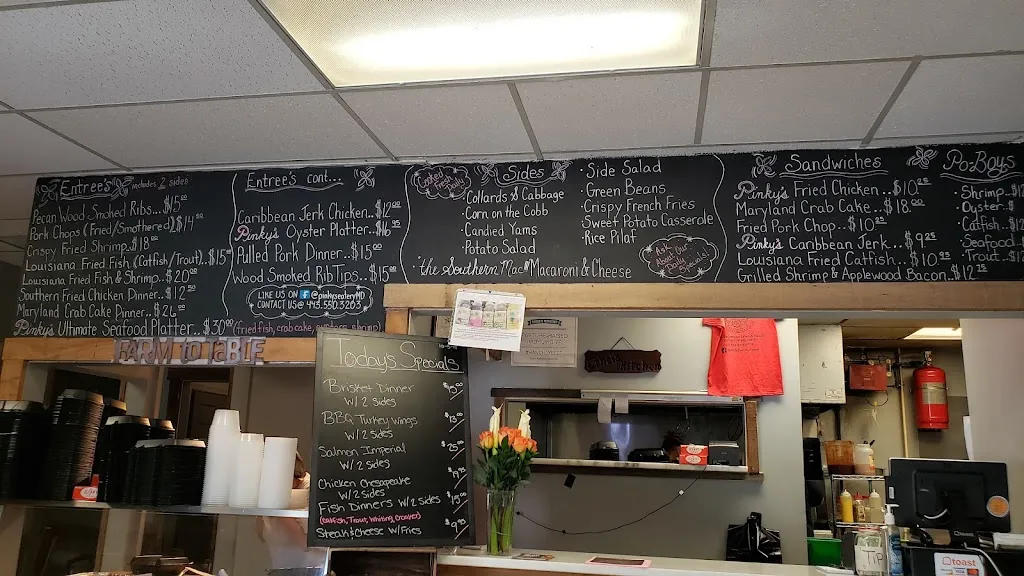 Entree's includes 2 sides
Pecan Wood Smoked Ribs...$15⁰⁰
Pork Chops (Fried/Smothered)$14
Crispy Fried Shrimp..$18⁰⁰
Louisiana Fried Fish (Catfish/Trout)..$15
Louisiana Fried Fish & Shrimp..$20⁰⁰
Southern Fried Chicken Dinner..$12⁵⁰
Maryland Crab Cake Dinner..$26⁰⁰
Pinky's Ultimate Seafood Platter..$30⁰⁰ (fried fish, crab cake, oysters, shrimp)
Entree's cont...
Caribbean Jerk Chicken..$12⁰⁰
Pinky's Oyster Platter..$16⁹⁵
Pulled Pork Dinner..$15⁰⁰
Wood Smoked Rib Tips..$15⁰⁰
LIKE US ON f @pinkyseateryMD
CONTACT US@ 443.550.3203
Cooked Fresh Daily
Sides
·Collards & Cabbage
·Corn on the Cobb
·Candied Yams
·Potato Salad
·"the Southern Mac" Macaroni & Cheese
·Side Salad
·Green Beans
·Crispy French Fries
·Sweet Potato Casserole
·Rice Pilaf
Ask About Our Daily Specials!
Sandwiches
Pinky's Fried Chicken..$10²⁵
Maryland Crab Cake..$18.⁰⁰
Fried Pork Chop..$10²⁵
Pinky's Caribbean Jerk..$9²⁵
Louisiana Fried Catfish..$10⁹⁵
Grilled Shrimp & Applewood Bacon.$12²⁵
Po-Boys
·Shrimp..$12
·Oyster.$
·Catfish..$12
·Seafood
·Trout..$12
FARM to TaBLE
Today's Specials
Brisket Dinner
W/ 2 sides
BBQ Turkey Wings
W/ 2 sides
$13.00
Salmon Imperial
W/ 2 sides
$25.00
Chicken Chesapeake
W/ 2 sides
Fish Dinners W/ 2 Sides $15.00
(Catfish, Trout, Whiting, Croaker)
Steak & Cheese W/ Fries $9.95
kitchen
TIP
toast